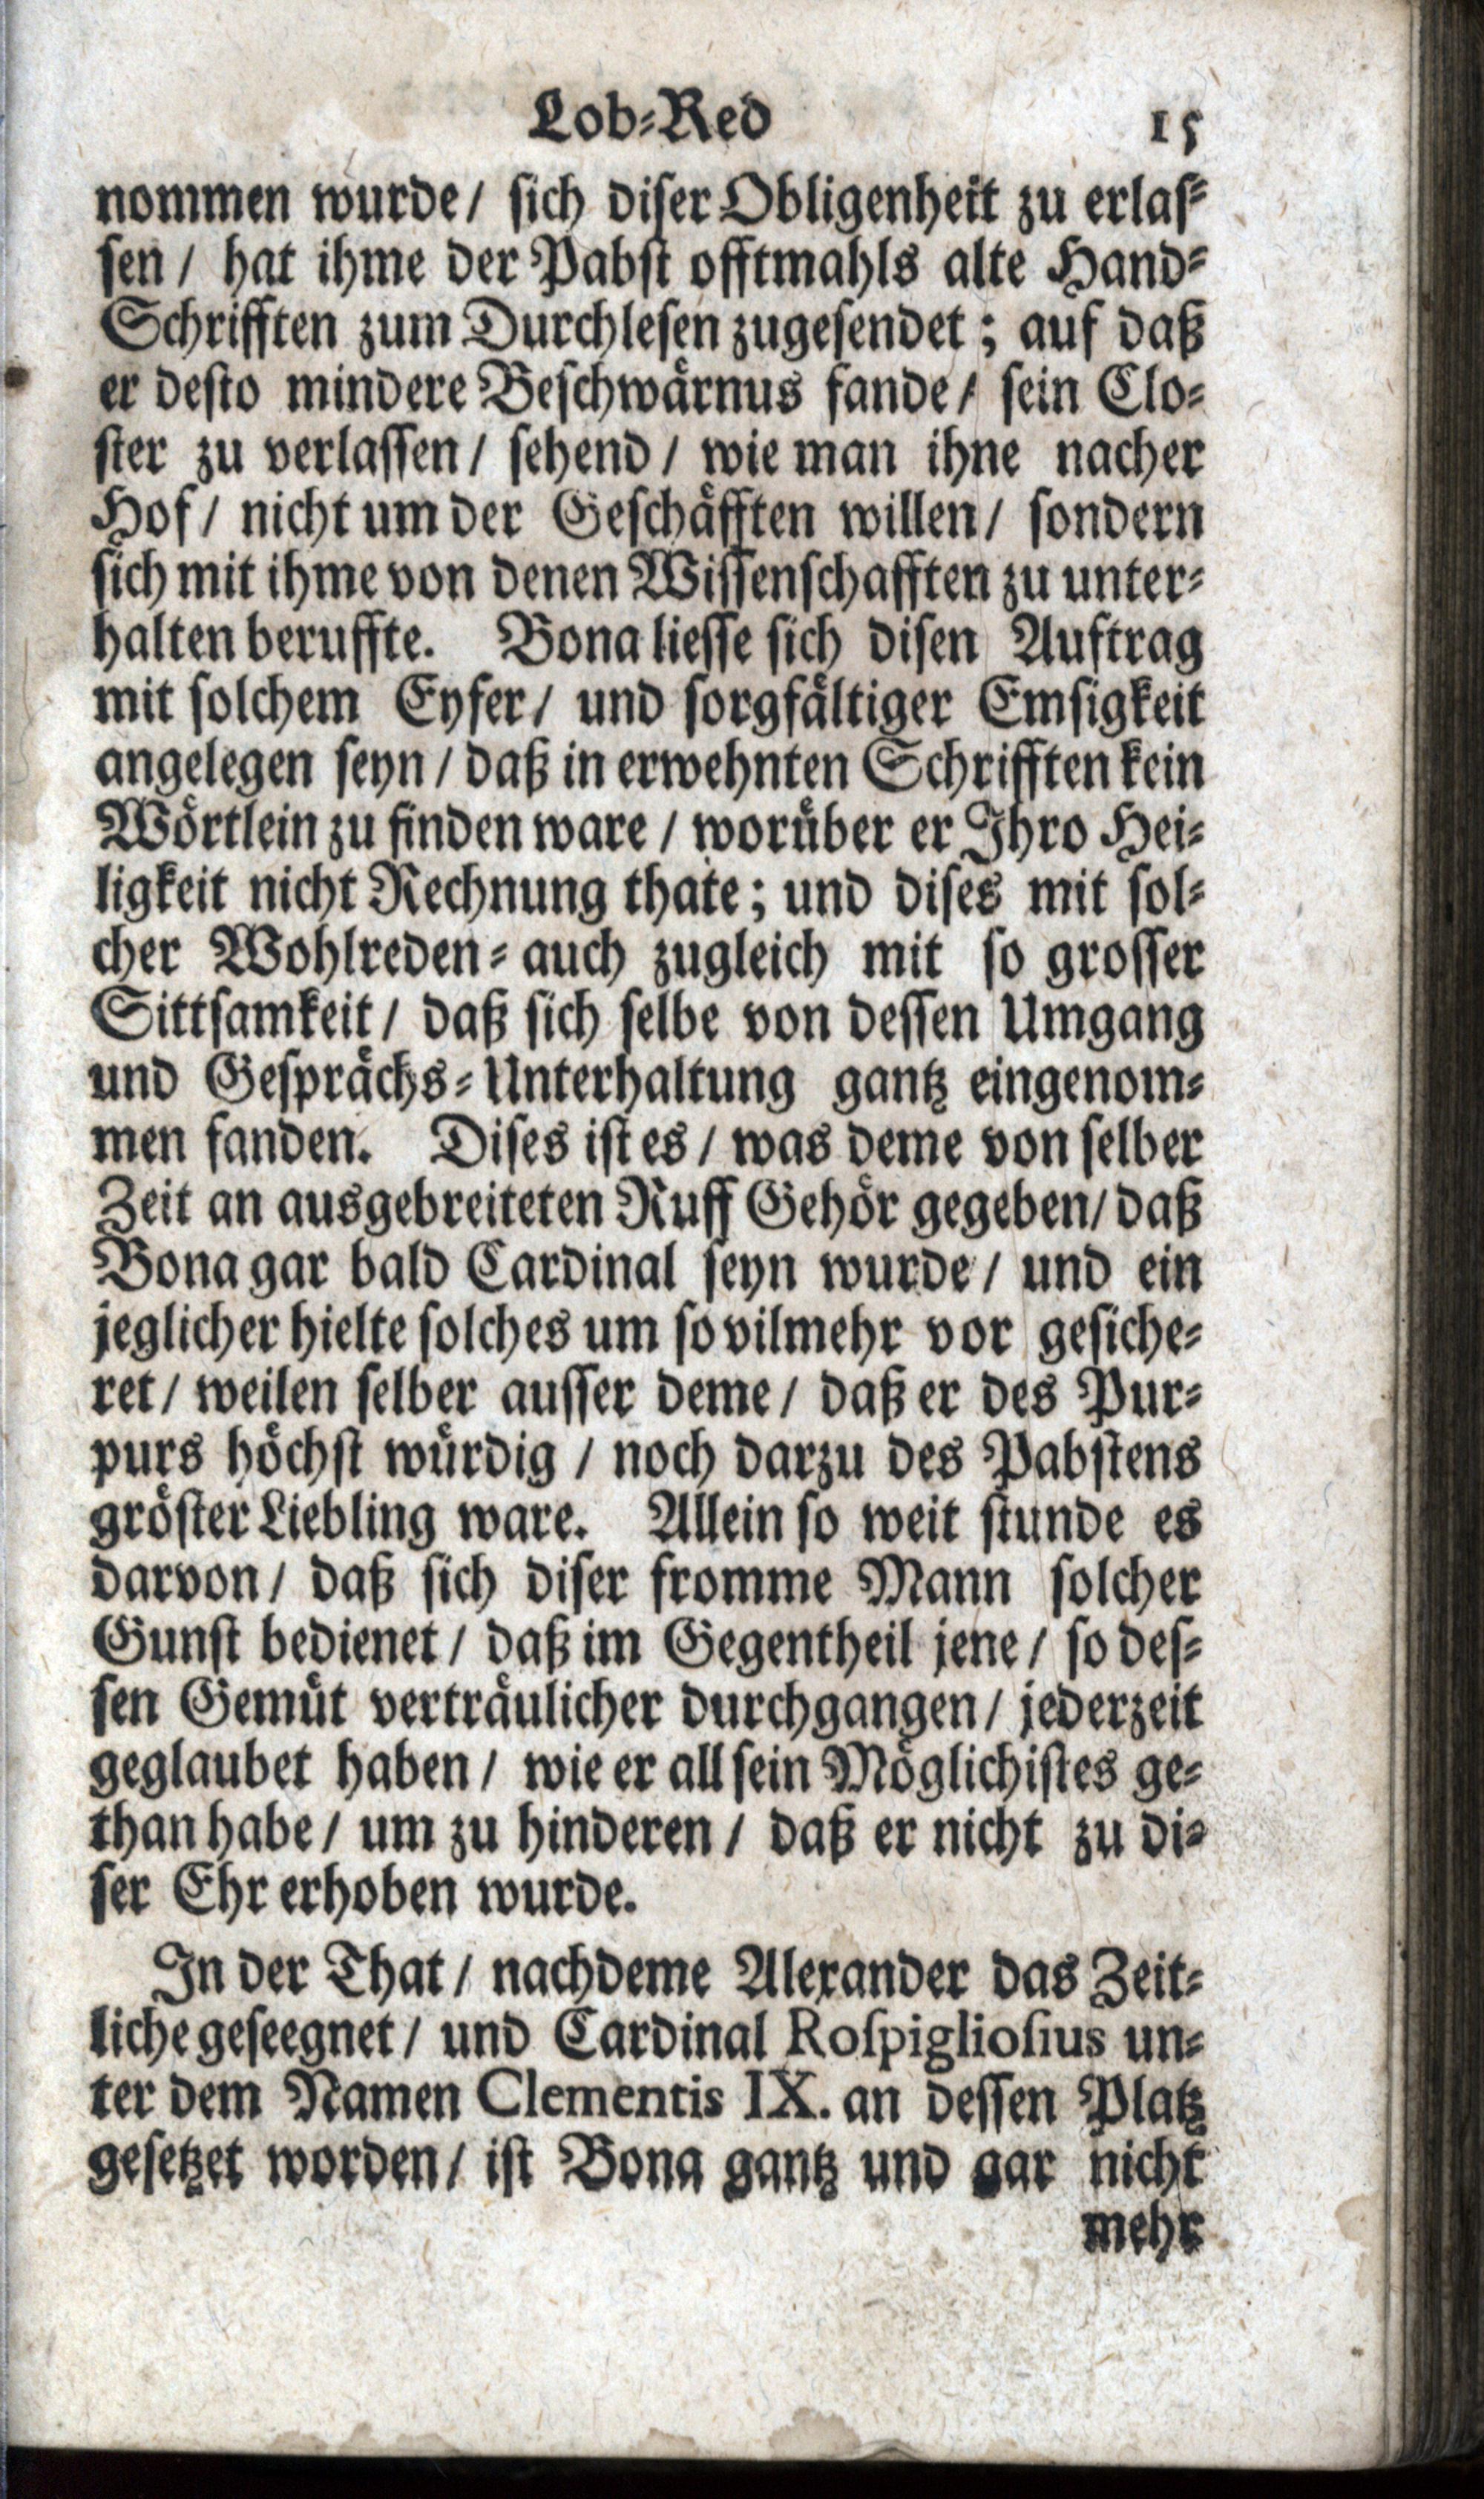 Lob-Red 15
nommen wurde/ sich diser Obligenheit zu erlas-
sen / hat ihme der Pabst offtmahls alte Hand-
Schrifften zum Durchlesen zugesendet; auf daß
er desto mindere Beschwärnus fande/ sein Clo-
ster zu verlassen/ sehend/ wie man ihne nacher
Hof/ nicht um der Geschäfften willen/ sondern
sich mit ihme von denen Wissenschafften zu unter-
halten beruffte. Bona liesse sich disen Auftrag
mit solchem Eyfer/ und sorgfältiger Emsigkeit
angelegen seyn/ daß in erwehnten Schrifften kein
Wörtlein zu finden ware / worüber er Ihro Hei-
ligkeit nicht Rechnung thate; und dises mit sol-
cher Wohlreden- auch zugleich mit so grosser
Sittsamkeit/ daß sich selbe von dessen Umgang
und Gesprächs-Unterhaltung gantz eingenom-
men fanden. Dises ist es/ was deme von selber
Zeit an ausgebreiteten Ruff Gehör gegeben/ daß
Bona gar bald Cardinal seyn wurde/ und ein
jeglicher hielte solches um so vilmehr vor gesiche-
ret/ weilen selber ausser deme/ daß er des Pur-
purs höchst würdig / noch darzu des Pabstens
gröster Liebling ware. Allein so weit stunde es
darvon/ daß sich diser fromme Mann solcher
Gunst bedienet/ daß im Gegentheil jene/ so des-
sen Gemüt verträulicher durchgangen/ jederzeit
geglaubet haben/ wie er all sein Möglichistes ge-
than habe/ um zu hinderen/ daß er nicht zu di-
ser Ehr erhoben wurde.
In der That/ nachdeme Alexander das Zeit-
liche geseegnet/ und Cardinal Rospigliosius un-
ter dem Namen Clementis IX. an dessen Platz
gesetzet worden/ ist Bona gantz und gar nicht
mehr